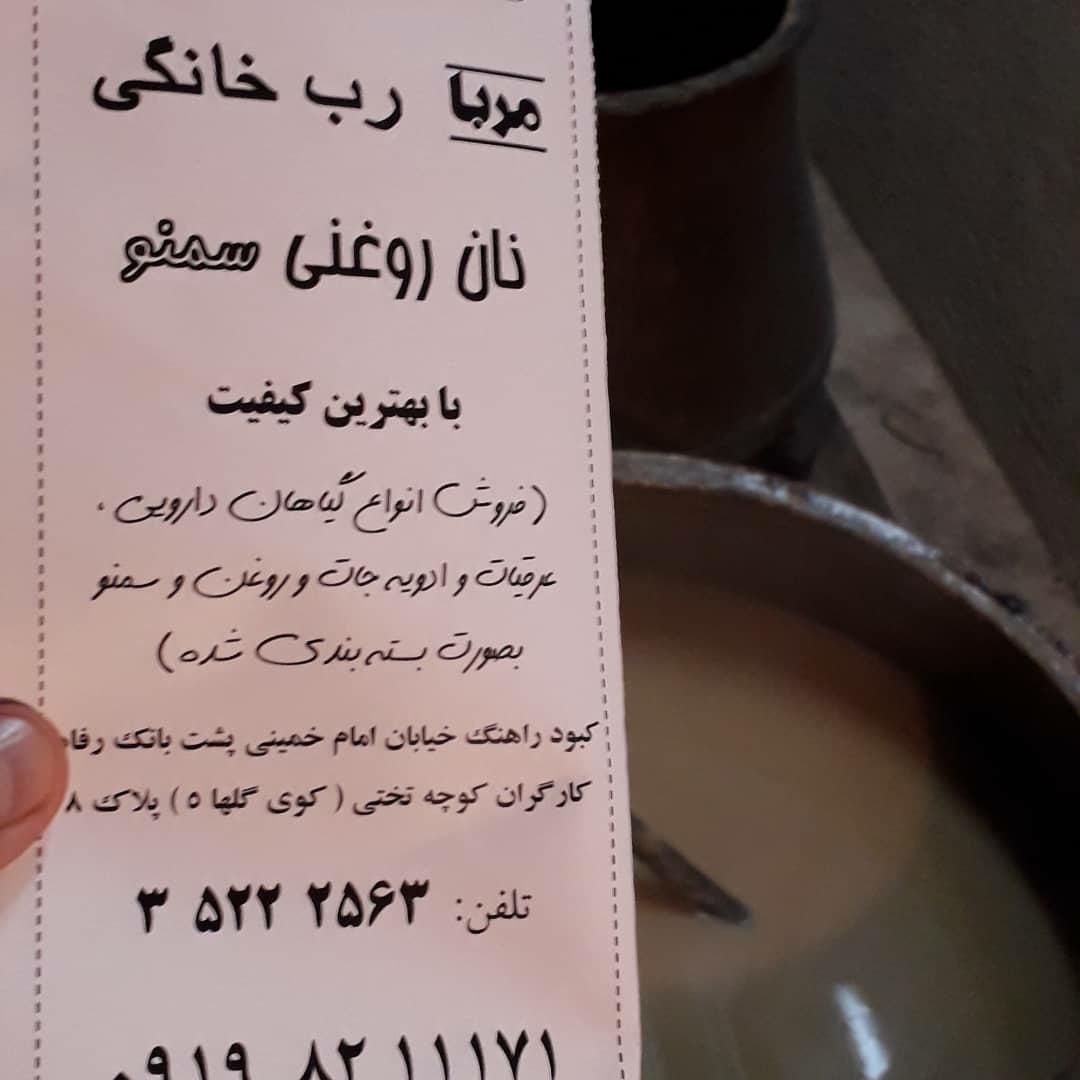 مربا رب خانگی
نان روغنی سمنو
با بهترین کیفیت
(فروش انواع گیاهان دارویی ،
عرقیات و ادویه جات و روغن و سمنو
بصورت بسته بندی شده)
کبود راهنگ خیابان امام خمینی پشت بانک رفاه
کارگران کوچه تختی ( کوی گلها ۵ ) پلاک ۸
تلفن: ۳ ۵۲۲ ۲۵۶۳
۰۹۱۹ ۸۲ ۱۱۱۷۱